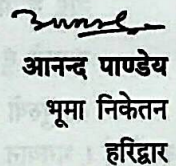 आनन्द पाण्डेय
भूमा निकेतन
हरिद्वार